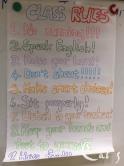 CLASS RULES
1. No running!!!
2. Speak English!
3. Raise your hand!
4. Don't shout!!!!!
5. Make smart choices!
6. Sit properly!
7. Listen to your teacher!
8. Keep your hands and